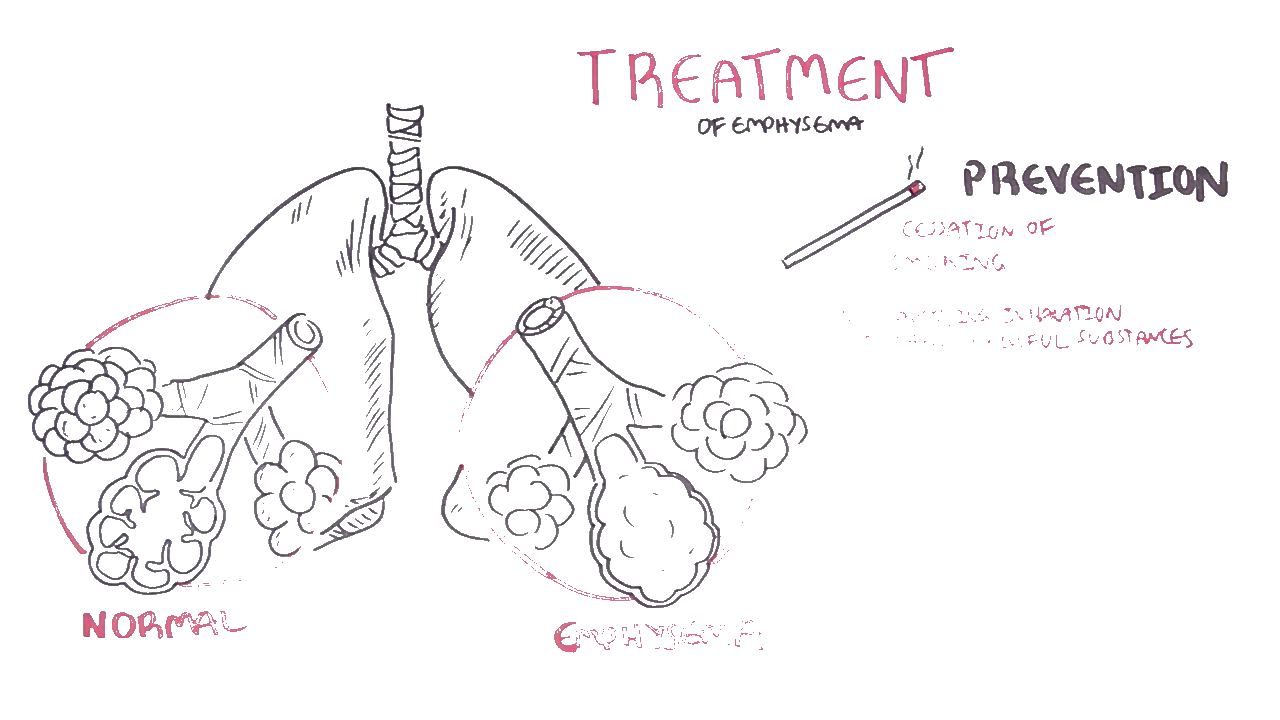 TREATMENT
OF EMPHYSEMA
PREVENTION
CESSATION OF
SMOKING
INHALATION
SUBSTANCES
NORMAL
EMPHYSEMA